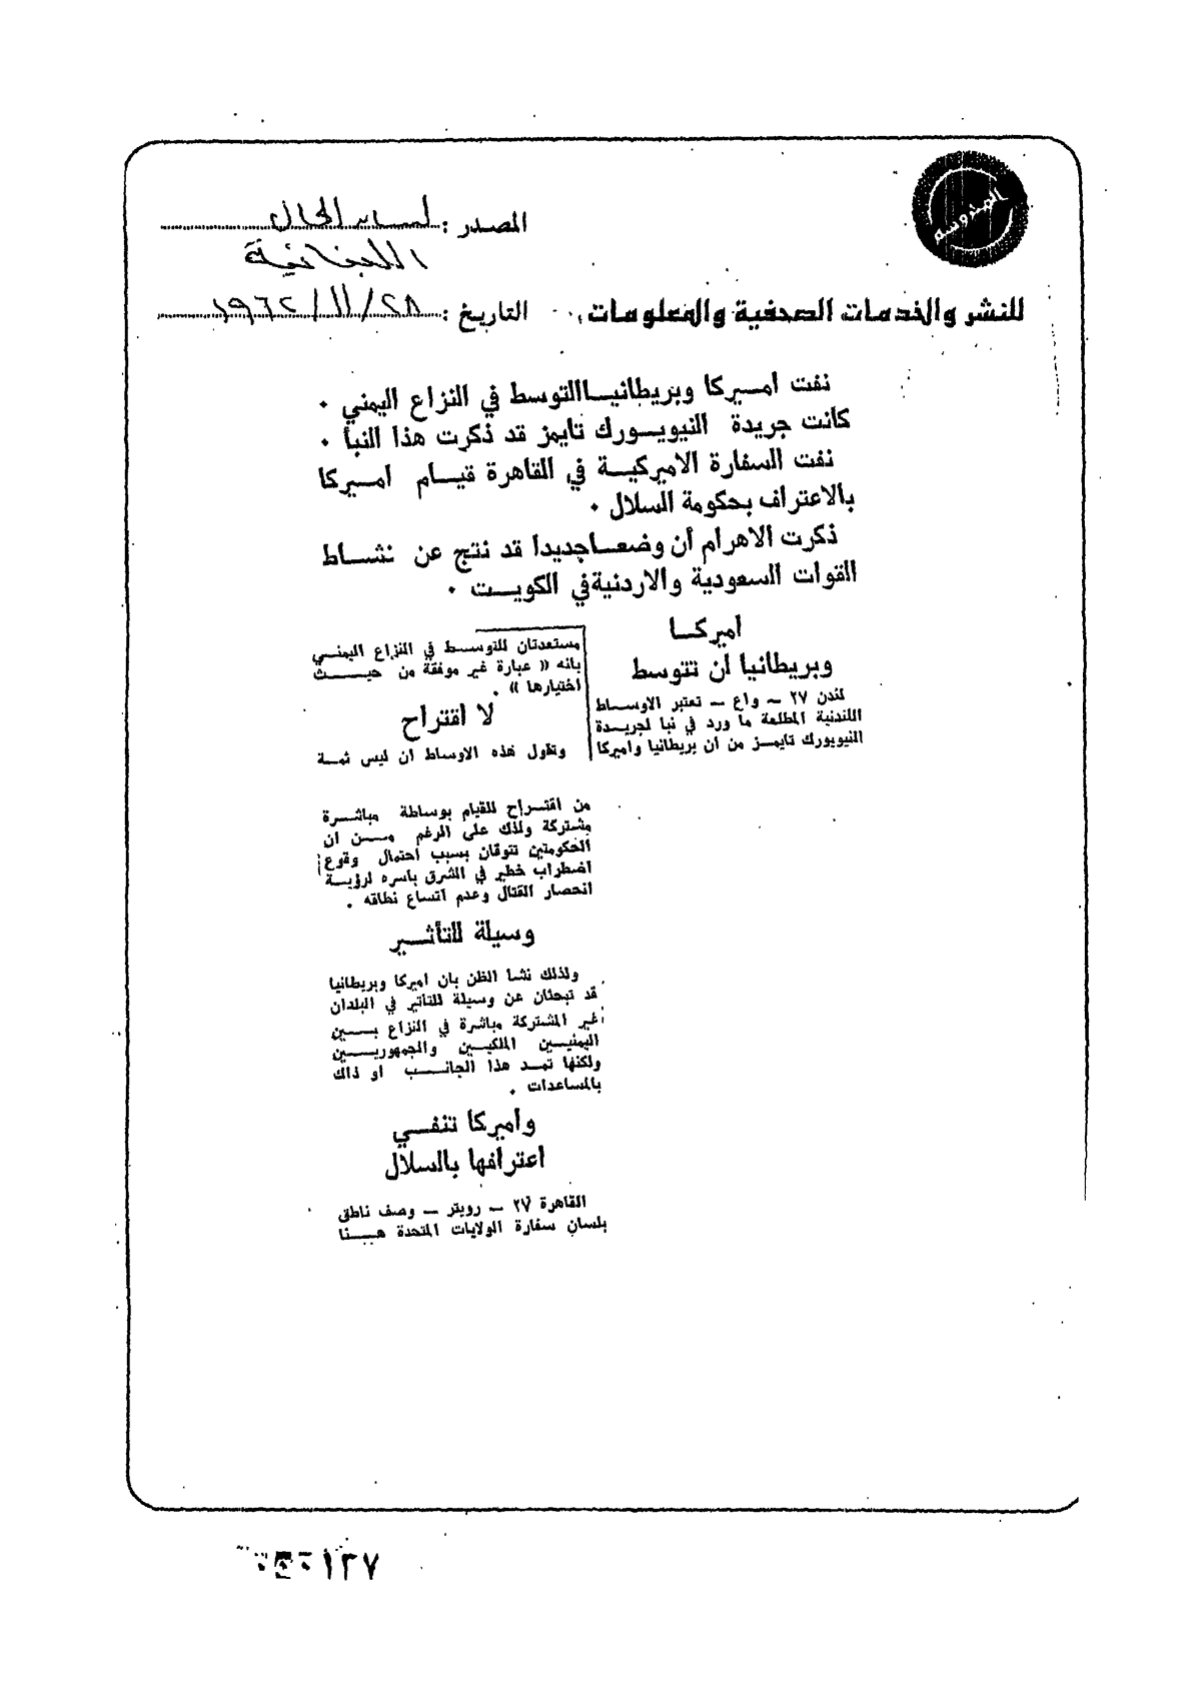 المدروسه
للنشر والخدمات الصحفية والمعلومات
المصدر : لسان الحال
اللبنانية
التاريخ : ٢٨/١١/١٩٦٢
نفت اميركا وبريطانيا التوسط في النزاع اليمني .
كانت جريدة النيويورك تايمز قد ذكرت هذا النبأ .
نفت السفارة الاميركية في القاهرة قيام اميركا
بالاعتراف بحكومة السلال .
ذكرت الاهرام أن وضعا جديدا قد نتج عن نشاط
القوات السعودية والاردنية في الكويت .
اميركا
وبريطانيا ان تتوسط
لندن ٢٧ - واع - تعتبر الاوساط
اللندنية المطلعة ما ورد في نبا لجريدة
النيويورك تايمز من ان بريطانيا واميركا
مستعدتان للتوسط في النزاع اليمني
بانه « عبارة غير موفقة من حيث
اختيارها » .
لا اقتراح
وتقول هذه الاوساط ان ليس ثمة
من اقتراح للقيام بوساطة مباشرة
مشتركة وذلك على الرغم من ان
الحكومتين تتوقان بسبب احتمال وقوع
اضطراب خطير في الشرق باسره لرؤية
انحصار القتال وعدم اتساع نطاقه .
وسيلة للتأثير
ولذلك نشأ الظن بان اميركا وبريطانيا
قد تبحثان عن وسيلة للتاثير في البلدان
غير المشتركة مباشرة في النزاع بين
اليمنيين الملكيين والجمهوريين
ولكنها تمد هذا الجانب او ذاك
بالمساعدات .
واميركا تنفي
اعترافها بالسلال
القاهرة ٢٧ - رويتر - وصف ناطق
بلسان سفارة الولايات المتحدة هنا
١٣٧